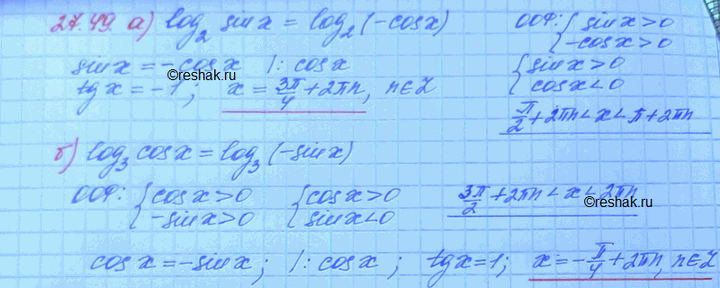 27.49. а) log₂ sinx = log₂(-cosx)
ООФ: { sinx > 0
-cosx > 0
sinx = -cosx /: cosx
{ sinx > 0
cosx < 0
tgx = -1; x = 3π/4 + 2πn, n∈Z
π/2 + 2πn < x < π + 2πn
©reshak.ru
б) log₃ cosx = log₃(-sinx)
ООФ: { cosx > 0
-sinx > 0
{ cosx > 0
sinx < 0
3π/2 + 2πn < x < 2πn
©reshak.ru
cosx = -sinx; /: cosx; tgx = 1; x = -π/4 + 2πn, n∈Z